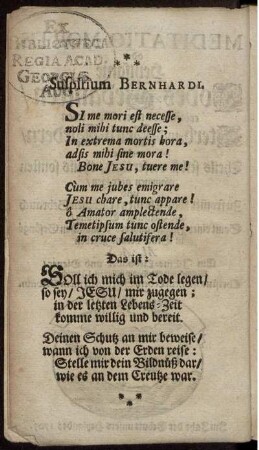 Ex
BIBLIOTHECA
REGIA ACAD.
GEORGIÆ
AUG.
* * *
Suspirium BERNHARDI.
SI me mori est necesse,
noli mihi tunc deesse;
In extrema mortis hora,
adsis mihi sine mora!
Bone JESU, tuere me!
Cùm me jubes emigrare
JESU chare, tunc appare!
ô Amator amplectende,
Temetipsum tunc ostende,
in cruce salutifera!
Das ist:
Soll ich mich im Tode legen/
so sey/ JESU/ mir zugegen;
in der letzten Lebens-Zeit
komme willig und bereit.
Deinen Schutz an mir beweise/
wann ich von der Erden reise:
Stelle mir dein Bildnüß dar/
wie es an dem Creutze war.
* * *